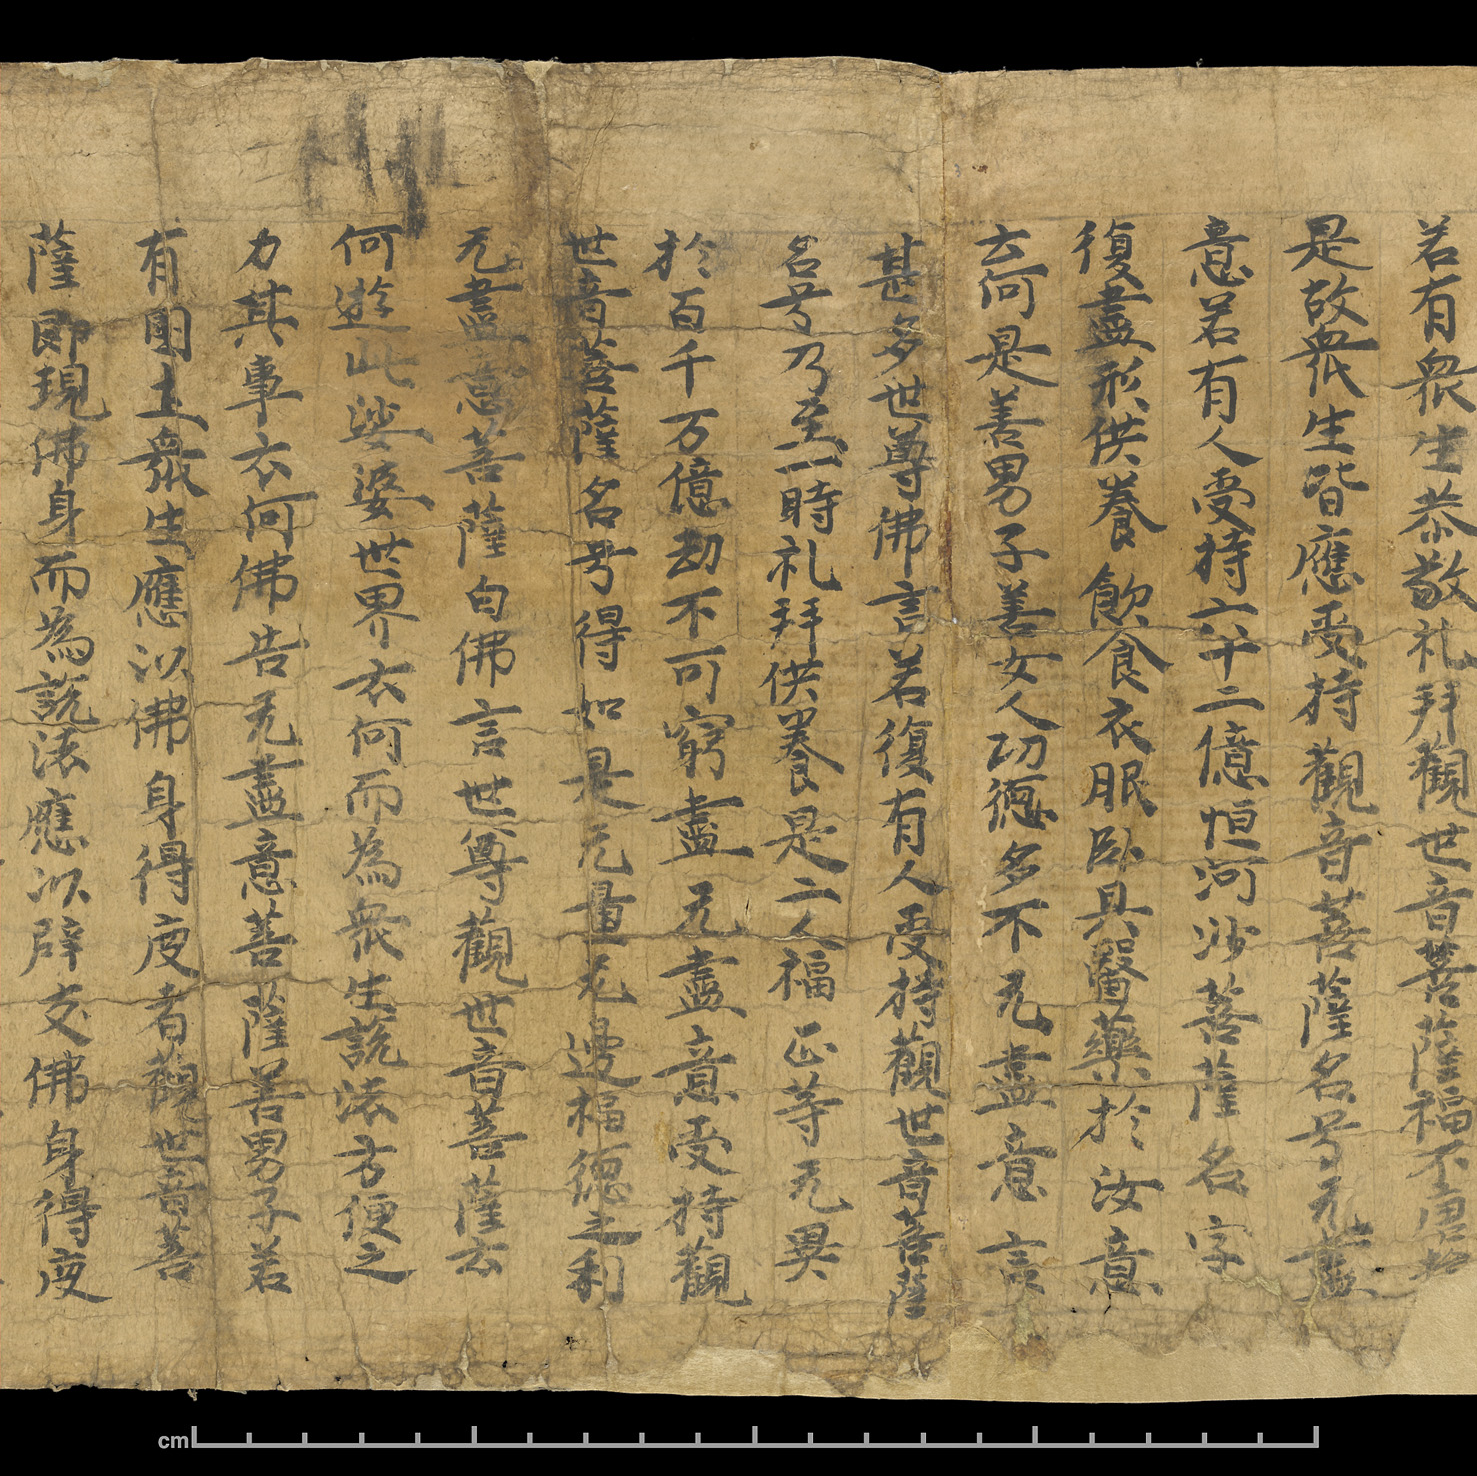 若有衆生恭敬礼拜觀世音菩薩福不唐捐
是故衆生皆應受持觀音菩薩名号无盡
意若有人受持六十二億恒河沙菩薩名字
復盡形供養飲食衣服卧具醫藥於汝意
云何是善男子善女人功德多不无盡意言
甚多世尊佛言若復有人受持觀世音菩薩
名号乃至一時礼拜供養是二人福正等无異
於百千万億劫不可窮盡无盡意受持觀
世音菩薩名号得如是无量无邊福德之利
无盡意菩薩白佛言世尊觀世音菩薩云
何遊此娑婆世界衣何而為衆生説法方便之
力其事衣何佛告无盡意菩薩善男子若
有國土衆生應以佛身得度者觀世音菩
薩即現佛身而為説法應以辟支佛身得度